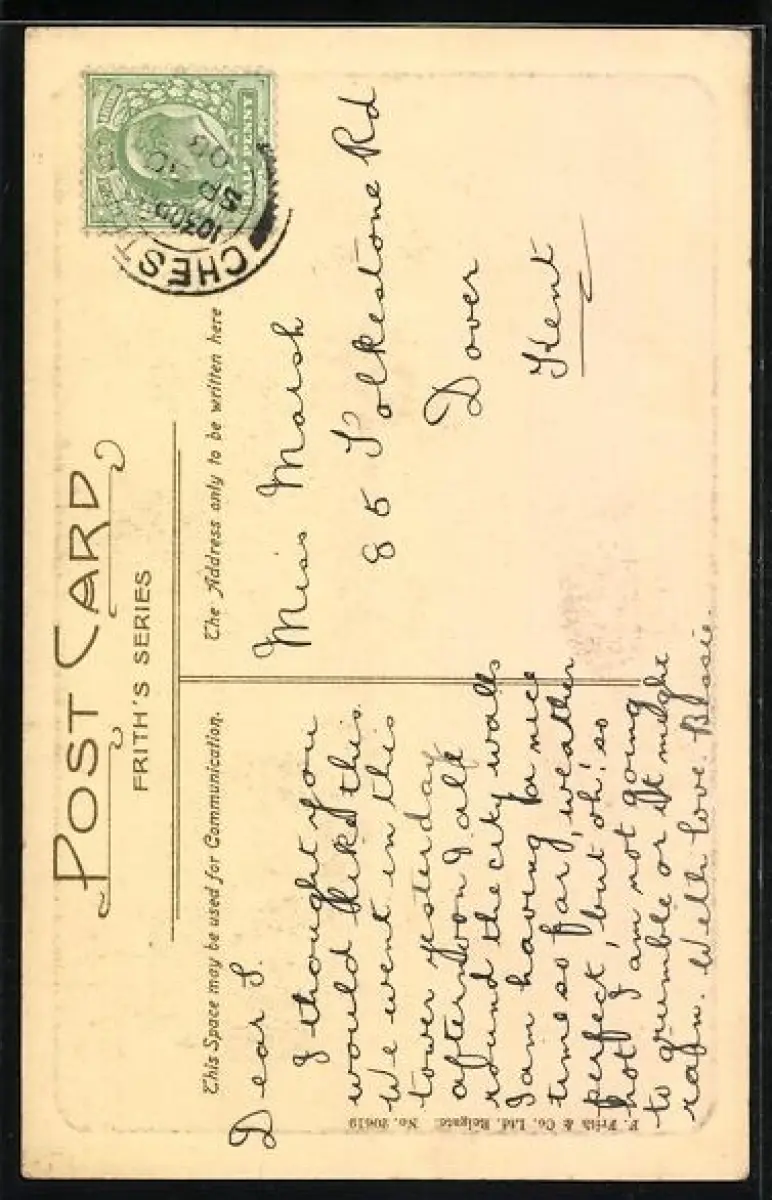 POST CARD
FRITH'S SERIES
This Space may be used for Communication.
The Address only to be written here
HALF PENNY
CHEST
1030
SP 30
08
Dear F.
I thought you
would like this.
We went in this
tower yesterday
afternoon & all
round the city walls
I am having a nice
time so far, weather
perfect, but oh! so
hot I am not going
to grumble or it might
rain. With love. Bessie.
Miss Marsh
85 Folkestone Rd
Dover
Kent
F. Frith & Co. Ltd. Reigate. No. 20619